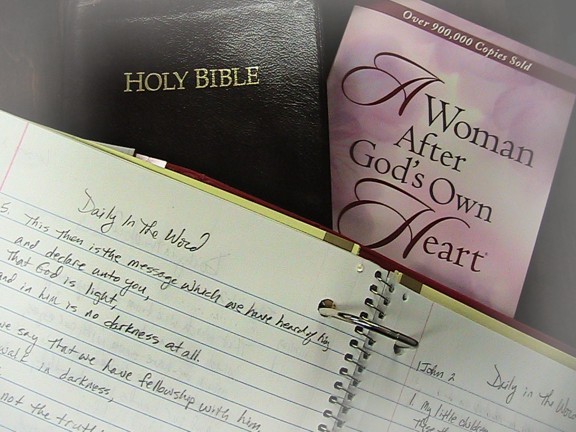 HOLY BIBLE
Over 900,000 Copies Sold
A Woman
After
God's Own
Heart
Daily In The Word
5. This then is the message which we have heard of him
and declare unto you,
that God is light
and in him is no darkness at all.
we say that we have fellowship with him
walk in darkness,
not the truth
1 John 2
Daily in the Word
1. My little children